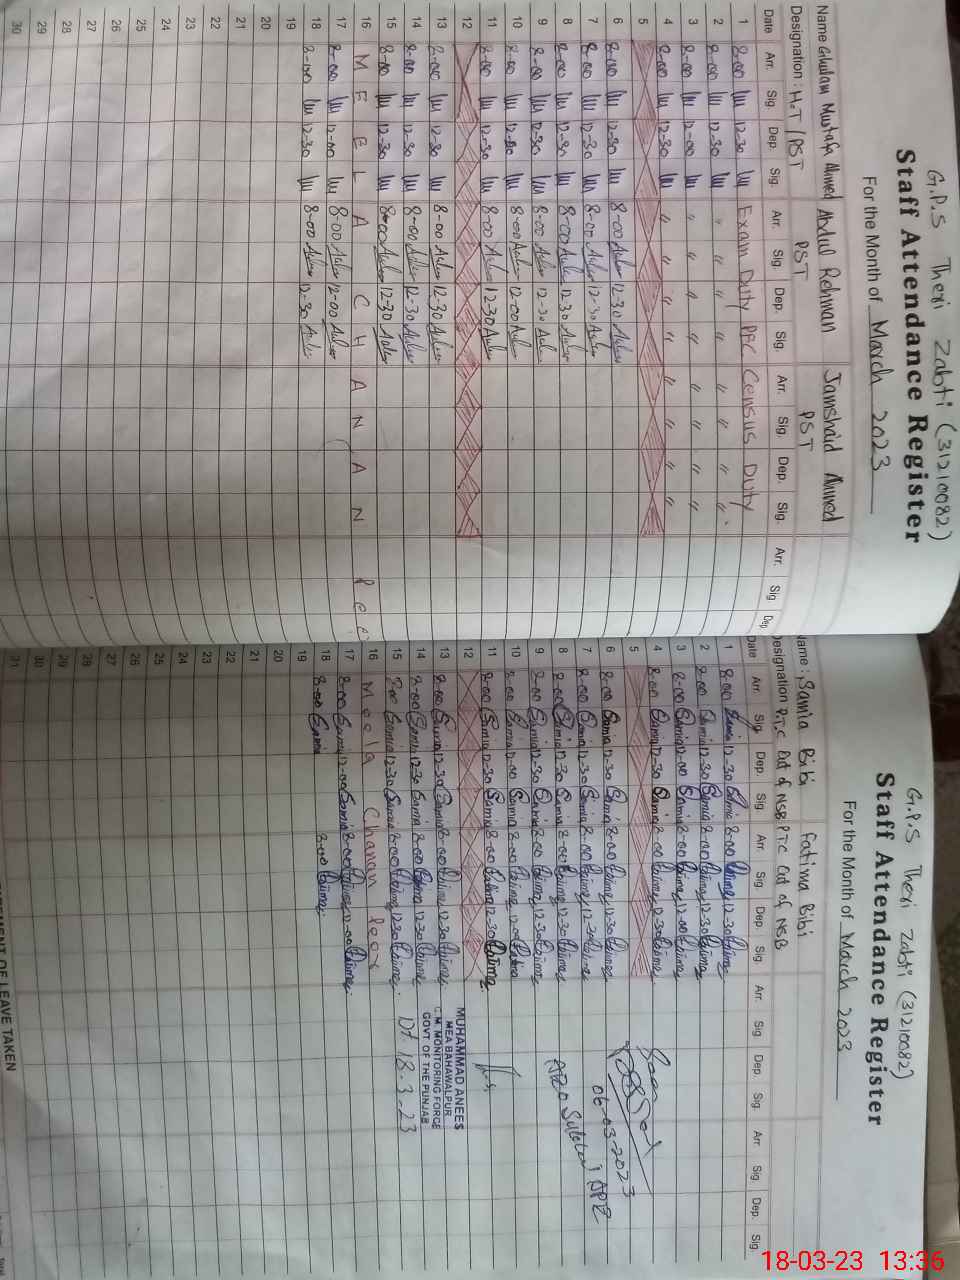 G.P.S Theri Zabti (31210082)
Staff Attendance Register
For the Month of March 2023
Name Ghulam Mustafa Ahmed Abdul Rehman Jamshaid Ahmed
Designation : H.T/PST PST PST
Date Arr. Sig. Dep. Sig. Arr. Sig. Dep. Sig. Arr. Sig. Dep. Sig. Arr. Sig Dep.
1 8-00 12-30 Exam Duty PEC Census Duty
2 8-00 12-30 " " " " " " " "
3 8-00 12-00 " " " " " " " "
4 8-00 12-30 " " " " " " " "
5
6 8-00 12-30 8-00 12-30
7 8-00 12-30 8-00 12-30
8 8-00 12-30 8-00 12-30
9 8-00 12-30 8-00 12-30
10 8-00 12-00 8-00 12-00
11 8-00 12-30 8-00 12-30
12
13 8-00 12-30 8-00 12-30
14 8-00 12-30 8-00 12-30
15 8-00 12-30 8-00 12-30
16 M E E L A C H A N A N P e e
17 8-00 12-00 8-00 12-00
18 8-00 12-30 8-00 12-30
19
20
21
22
23
24
25
26
27
28
29
30
G.P.S Theri Zabti (31210082)
Staff Attendance Register
For the Month of March 2023
Name : Samia Bibi Fatima Bibi
Designation P.T.C Out of NSB PTC Out of NSB
Date Arr. Sig. Dep. Sig. Arr. Sig. Dep. Sig. Arr. Sig. Dep. Sig. Arr. Sig. Dep. Sig.
1 8-00 Samia 12-30 Samia 8-00 Fatima 12-30 Fatima
2 8-00 Samia 12-30 Samia 8-00 Fatima 12-30 Fatima
3 8-00 Samia 12-00 Samia 8-00 Fatima 12-00 Fatima
4 8-00 Samia 12-30 Samia 8-00 Fatima 12-30 Fatima
5
6 8-00 Samia 12-30 Samia 8-00 Fatima 12-30 Fatima
7 8-00 Samia 12-30 Samia 8-00 Fatima 12-30 Fatima
06-03-2023
8 8-00 Samia 12-30 Samia 8-00 Fatima 12-30 Fatima
9 8-00 Samia 12-30 Samia 8-00 Fatima 12-30 Fatima
10 8-00 Samia 12-00 Samia 8-00 Fatima 12-00 Fatima
11 8-00 Samia 12-30 Samia 8-00 Fatima 12-30 Fatima
12
13 8-00 Samia 12-30 Samia 8-00 Fatima 12-30 Fatima
14 8-00 Samia 12-30 Samia 8-00 Fatima 12-30 Fatima
15 8-00 Samia 12-30 Samia 8-00 Fatima 12-30 Fatima
MUHAMMAD ANEES
MEA BAHAWALPUR
C.M. MONITORING FORCE
GOVT OF THE PUNJAB
Dt 18-3-23
16 Meela Chanan Peer
17 8-00 Samia 12-00 Samia 8-00 Fatima 12-00 Fatima
18 8-00 Samia 8-00 Fatima
19
20
21
22
23
24
25
26
27
28
29
30
31
OF LEAVE TAKEN
18-03-23 13:36